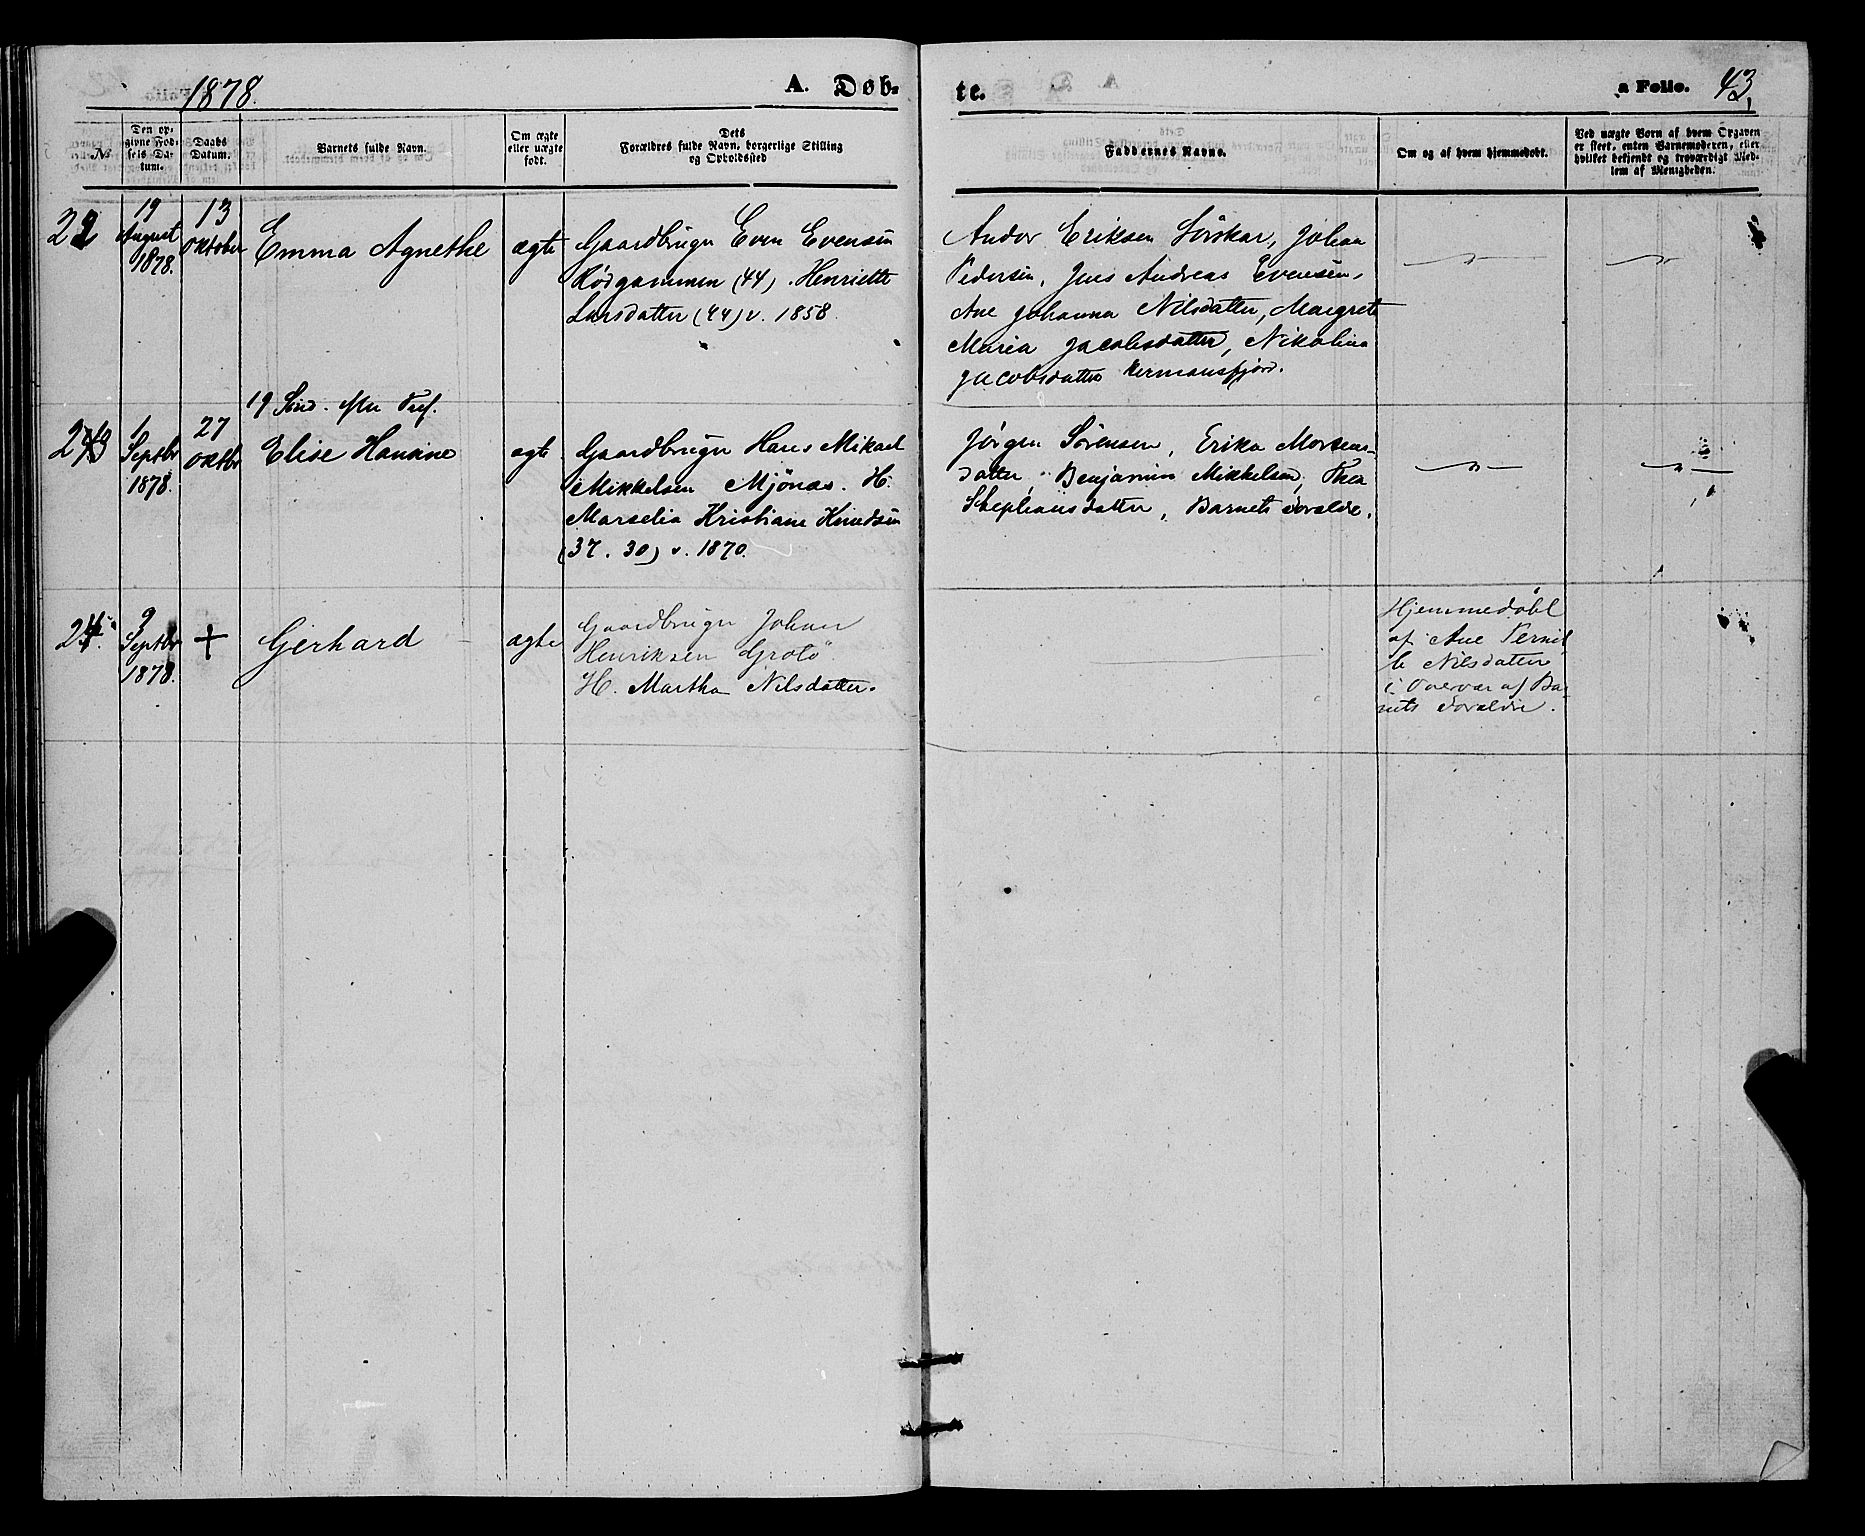 1878.
A. Døb-
te.
a Folio. 43.
No.
Den op-
givne Fød-
sels Da-
tum.
Daabs
Datum.
Barnets fulde Navn.
Om ægte
eller uægte
født.
Dets
Forældres fulde Navn, borgerlige Stilling
og Opholdssted
Faddernes Navne.
Om og af hvem hjemmedøbt.
Ved uægte Børn af hvem Opgaven
er skeet, enten Barnemoderen, eller
hvilket bekjendt og troværdigt Med-
lem af Menigheden.
22
19
August
1878.
13
Oktober
Emma Agnethe
ægte
Gaardbruger Even Evensen
Rødgammen (44). Henriette
Larsdatter (44) v. 1858.
Andor Eriksen Sörskar, Johan
Pedersen, Jens Andreas Evensen,
Ane Johanna Nilsdatter, Margrete
Maria Jacobsdatter, Nikolina
Jacobsdatter Hermansfjord.
19 Sönd. efter Tref.
23
1
Septbr
1878.
27
Oktbr
Elise Hanine
ægte
Gaardbruger Hans Mikael
Mikkelsen Mjönæs. H.
Marselia Kristiane Knudsen
(37. 30) v. 1870.
Jörgen Sörensen, Erika Mortens-
datter, Benjamin Mikkelsen, Thea
Stephansdatter, Barnets Forældre.
24.
9
Septbr
1878.
+
Gerhard
ægte
Gaardbruger Johan
Henriksen Grotö.
H. Martha Nilsdatter.
Hjemmedöbt
af Ane Pernil
le Nilsdatter
i Overvær af Bar
nets Forældre.